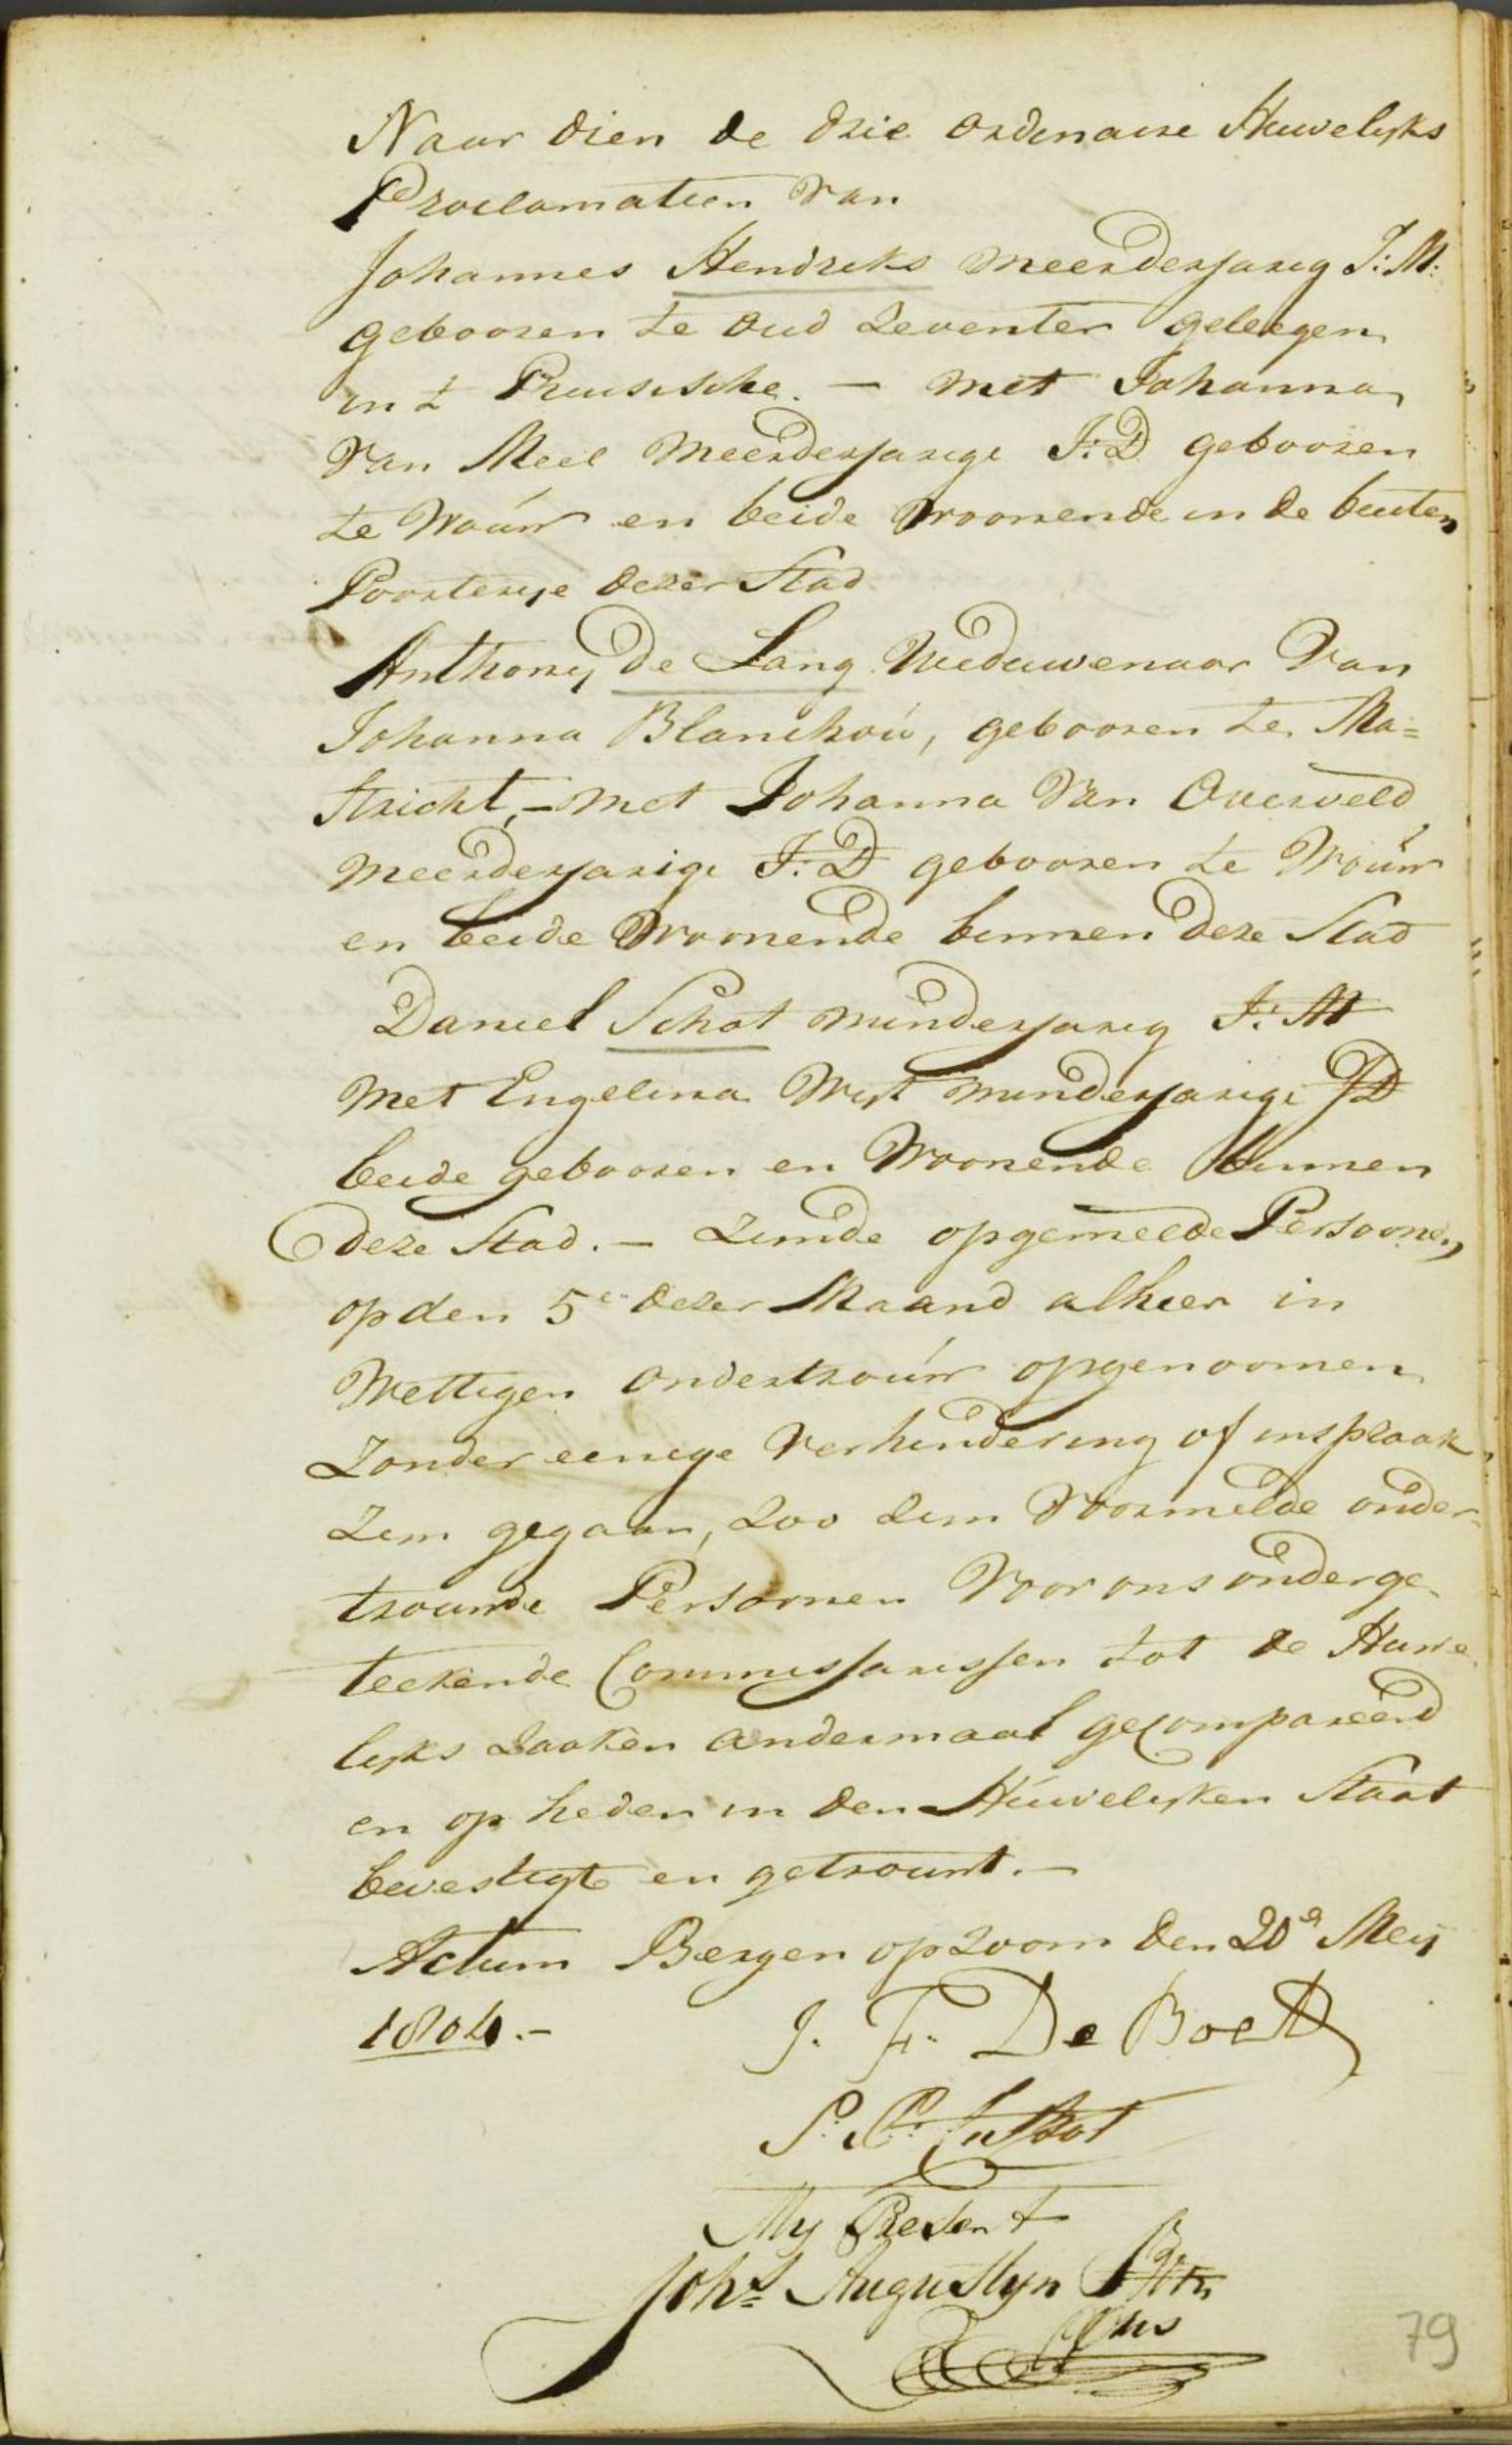 Naar dien de drie ordinaire Huwelijks
Proclamatien van
Johannes Hendriks meerderjarig J: M:
gebooren te Oud Zeventer geleegen
in t Pruisische. — met Johanna
van Meel meerderjarige J: D gebooren
te Wouw en beide woonende in de buiten
Poorterije dezer Stad
Anthonij de Lang Weduwenaar van
Johanna Blanckou, gebooren te Ma=
stricht, — met Johanna van Overveld
meerderjarige J: D gebooren te Wouw
en beide woonende binnen deze Stad
Daniel Schot minderjarig J: M
met Engelina Wist minderjarige JD
beide gebooren en woonende binnen
deze Stad. — zijnde opgemelde Persoonen
op den 5e dezer Maand alhier in
Wettigen ondertrouw opgenoomen
zonder eenige verhindering of inspraak
zijn gegaan, zoo zijn voormelde onder-
trouwde Persoonen voor ons onderge-
teekende Commissarissen tot de Huwe
lijks zaaken andermaal gecompareerd
en op heden in den Huwelijken Staat
bevestigt en getrouwt. —
Actum Bergen op Zoom den 20e Meij
1804. — J. F. De Boett
P. C.
My Present
Johs Augustijn
79